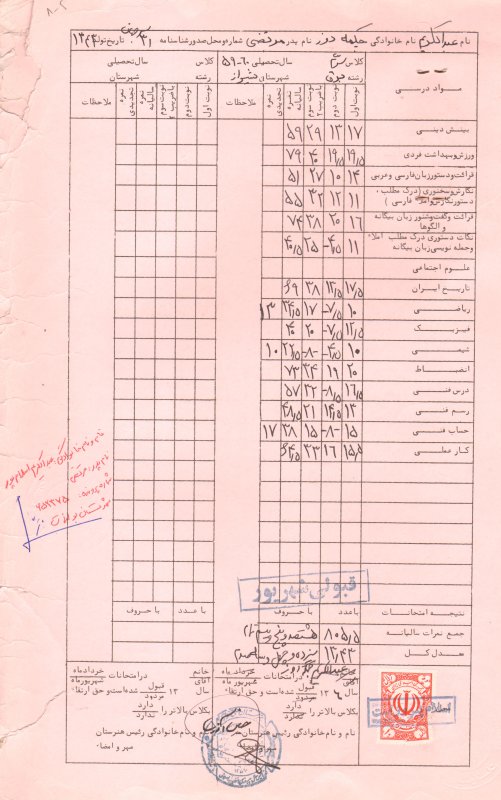 نام عبدالکریم نام خانوادگی حکیمه دوز نام پدر مرتضی شماره و محل صدور شناسنامه ۳۱ تاریخ تولد ۱۳۴۳
مواد درسی
کلاس سال تحصیلی ۶۰-۵۹
رشته برق شهرستان شیراز
نوبت اول
نوبت دوم
نوبت سوم با ضریب ۲
نمره سالیانه
نمره تجدیدی
ملاحظات
کلاس سال تحصیلی
رشته شهرستان
نوبت اول
نوبت دوم
نوبت سوم با ضریب ۲
نمره سالیانه
نمره تجدیدی
ملاحظات
بینش دینی ۱۷ ۱۳ ۲۹ ۵۹
ورزش و بهداشت فردی ۱۹/۵ ۱۹/۵ ۴۰ ۷۹
قرائت و دستور زبان فارسی و عربی ۱۴ ۱۰ ۲۷ ۵۱
نگارش و سخنوری (درک مطلب ، دستور نگارش و املاء فارسی) ۱۱ ۱۲ ۳۲ ۵۵
قرائت و گفت و شنود زبان بیگانه و الگوها ۱۶ ۲۰ ۳۸ ۷۴
نکات دستوری درک مطلب املاء و جمله نویسی زبان بیگانه ۱۱ ۴/۵ ۲۵ ۴۰/۵
علوم اجتماعی
تاریخ ایران ۱۷/۵ ۱۳/۵ ۳۸ ۶۹
ریاضی ۱۰ ۷/۵ ۱۷ ۳۴/۵ ۱۳
فیزیک ۱۲/۵ ۷/۵ ۲۰ ۴۰
شیمی ۱۰ ۴/۵ ۸ ۲۲/۵ ۱۰
انضباط ۲۰ ۱۹ ۳۴ ۷۳
درس فنی ۱۶/۵ ۸/۵ ۳۲ ۵۷
رسم فنی ۱۳ ۱۴/۵ ۲۱ ۴۸/۵
حساب فنی ۱۵ ۸ ۱۵ ۳۸ ۱۷
کار عملی ۱۵/۵ ۱۶ ۳۳ ۶۴/۵
قبولی شهریور
نتیجه امتحانات با عدد با حروف با عدد با حروف
جمع نمرات سالیانه ۸۰۵/۵
معدل کل ۱۳/۴۳
در امتحانات خرداد ماه شهریور ماه
سال ۱۳۶ قبول مردود شده است و حق ارتقاء
بکلاس بالاتر را دارد ندارد
نام و نام خانوادگی رئیس هنرستان
مهر و امضاء
خانم آقای در امتحانات خرداد ماه شهریور ماه
سال ۱۳ قبول مردود شده است و حق ارتقاء
بکلاس بالاتر را دارد ندارد
نام و نام خانوادگی رئیس هنرستان
مهر و امضاء
نام و نام خانوادگی عبدالکریم
نام پدر: مرتضی